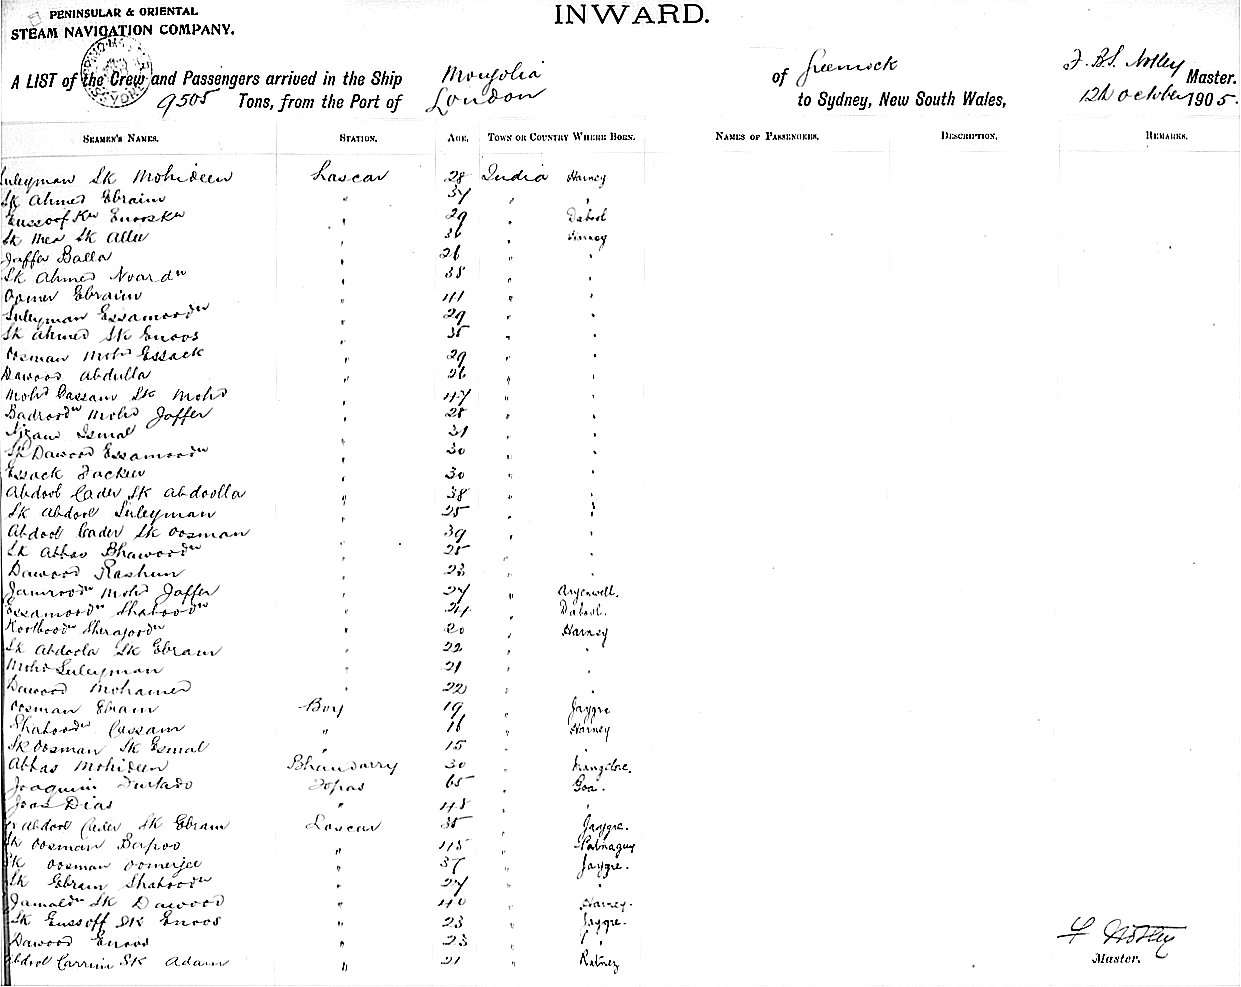 PENINSULAR & ORIENTAL
STEAM NAVIGATION COMPANY.
INWARD.
A LIST of the Crew and Passengers arrived in the Ship Mongolia of Greenock F. B.S. Notley Master.
9505 Tons, from the Port of London to Sydney, New South Wales, 12th October 1905.
SEAMEN'S NAMES. STATION. AGE. TOWN OR COUNTRY WHERE BORN. NAMES OF PASSENGERS. DESCRIPTION. REMARKS.
Suleyman Sk Mohideen Lascar 28 India Harney
Sk Ahmed Ebraim " 37 " "
Eussoof Kn Enoos Kn " 29 " Dabool
Sk Mea Sk Allee " 36 " Hurney
Jaffer Balla " 26 " "
Sk Ahmed Noordn " 38 " "
Oomer Ebraim " 41 " "
Suleyman Essamoodn " 29 " "
Sk Ahmed Sk Enoos " 35 " "
Oosman Mohd Essack " 29 " "
Dawood Abdulla " 26 " "
Mohd Cassam Sk Mohd " 47 " "
Badroodn Mohd Jaffer " 28 " "
Nizam Ismal " 31 " "
Sk Dawood Essamoodn " 30 " "
Essack " 30 " "
Abdool Cader Sk Abdoolla " 38 " "
Sk Abdool Suleyman " 25 " "
Abdool Cader Sk Oosman " 39 " "
Sk Abbas Bhawoodn " 25 " "
Dawood " 23 " "
Jamroodn Mohd Jaffer " 27 "
Essamoodn Shaboodn " 24 " Dabool.
Kootboodn Sherafoodn " 20 " Harney
Sk Abdoola Sk Ebram " 22 " "
Mohd Suleyman " 21 " "
Dawood Mohamed " 22 " "
Oosman Ebram Boy 19 " Jaygre
Shaboodn Cassam " 16 " Harney
Sk Oosman Sk Esmal " 15 " "
Abbas Mohideen Bhandarry 30 " Mangilore.
Joaquim Furtado Topas 65 " Goa.
Joas Dias " 48 " "
Abdool Cader Sk Ebram Lascar 35 " Jaygre.
Sk Oosman Bapoo " 45 "
Sk Oosman Oomerjee " 37 " Jaygre.
Sk Ebram Shaboodn " 27 " "
Jamaldn Sk Dawood " 40 " Harney.
Sk Eussoff Sk Enoos " 23 " Jaygre.
Dawood Enoos " 23 " "
Abdool Carrim Sk Adam " 21 "
F Notley
Master.